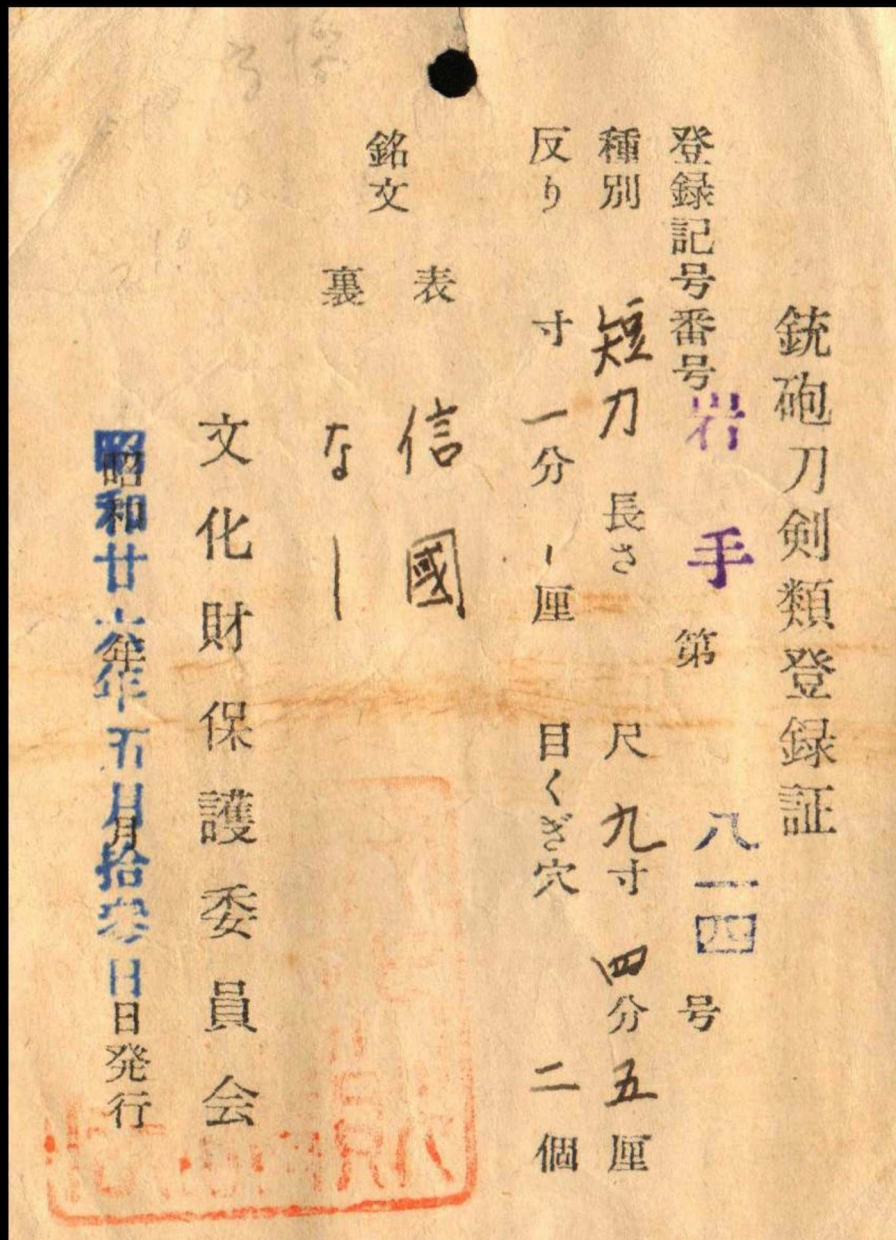 銃砲刀剣類登録証
登録記号番号 岩手 第 八一四 号
種別 短刀 長さ 尺 九寸 四分 五厘
反り 寸 一分 厘 目くぎ穴 二個
銘文
表 信國
裏 なし
文化財保護委員会
昭和廿六年五月拾参日発行